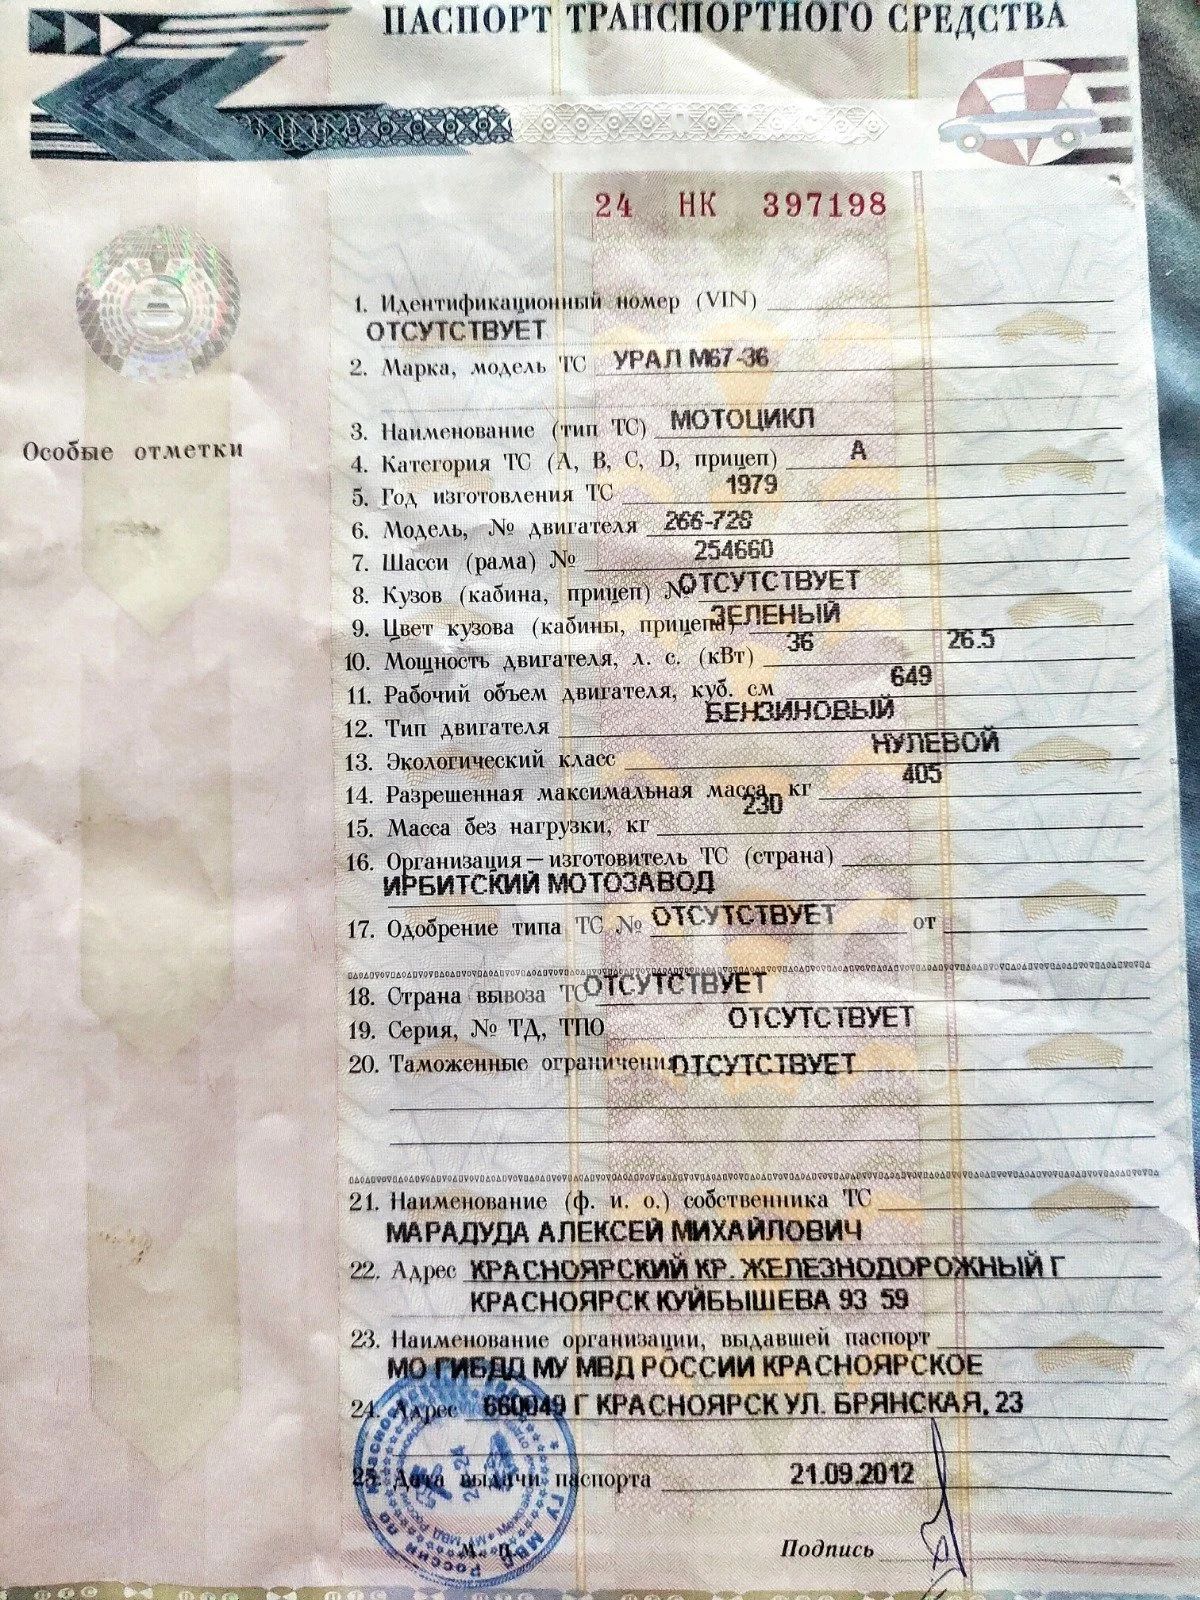 ПАСПОРТ ТРАНСПОРТНОГО СРЕДСТВА
24 НК 397198
Особые отметки
1. Идентификационный номер (VIN)
ОТСУТСТВУЕТ
2. Марка, модель ТС УРАЛ М67-36
3. Наименование (тип ТС) МОТОЦИКЛ
4. Категория ТС (А, В, С, D, прицеп) А
5. Год изготовления ТС 1979
6. Модель, № двигателя 266-728
7. Шасси (рама) № 254660
8. Кузов (кабина, прицеп) № ОТСУТСТВУЕТ
9. Цвет кузова (кабины, прицепа) ЗЕЛЕНЫЙ
10. Мощность двигателя, л. с. (кВт) 36 26.5
11. Рабочий объем двигателя, куб. см 649
12. Тип двигателя БЕНЗИНОВЫЙ
13. Экологический класс НУЛЕВОЙ
14. Разрешенная максимальная масса, кг 405
15. Масса без нагрузки, кг 230
16. Организация — изготовитель ТС (страна)
ИРБИТСКИЙ МОТОЗАВОД
17. Одобрение типа ТС № ОТСУТСТВУЕТ от
18. Страна вывоза ТС ОТСУТСТВУЕТ
19. Серия, № ТД, ТПО ОТСУТСТВУЕТ
20. Таможенные ограничения ОТСУТСТВУЕТ
21. Наименование (ф. и. о.) собственника ТС
МАРАДУДА АЛЕКСЕЙ МИХАЙЛОВИЧ
22. Адрес КРАСНОЯРСКИЙ КР. ЖЕЛЕЗНОДОРОЖНЫЙ Г
КРАСНОЯРСК КУЙБЫШЕВА 93 59
23. Наименование организации, выдавшей паспорт
МО ГИБДД МУ МВД РОССИИ КРАСНОЯРСКОЕ
24. Адрес 660049 Г КРАСНОЯРСК УЛ. БРЯНСКАЯ, 23
25. Дата выдачи паспорта 21.09.2012
М. п.
Подпись